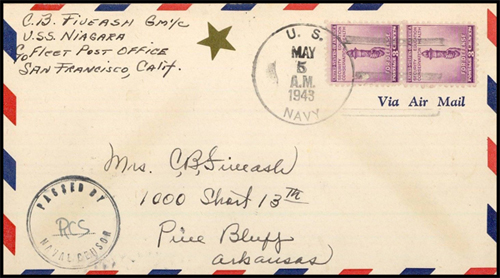 C.B. Fiveash GM1/c
U.S.S. NIAGARA
c/o FLEET POST OFFICE
SAN FRANCISCO, Calif.
U. S.
MAY
5
A.M.
1943
NAVY
Via Air Mail
Mrs. C.B. Fiveash
1000 Short 13th
Pine Bluff
Arkansas
PASSED BY
RCS.
NAVAL CENSOR